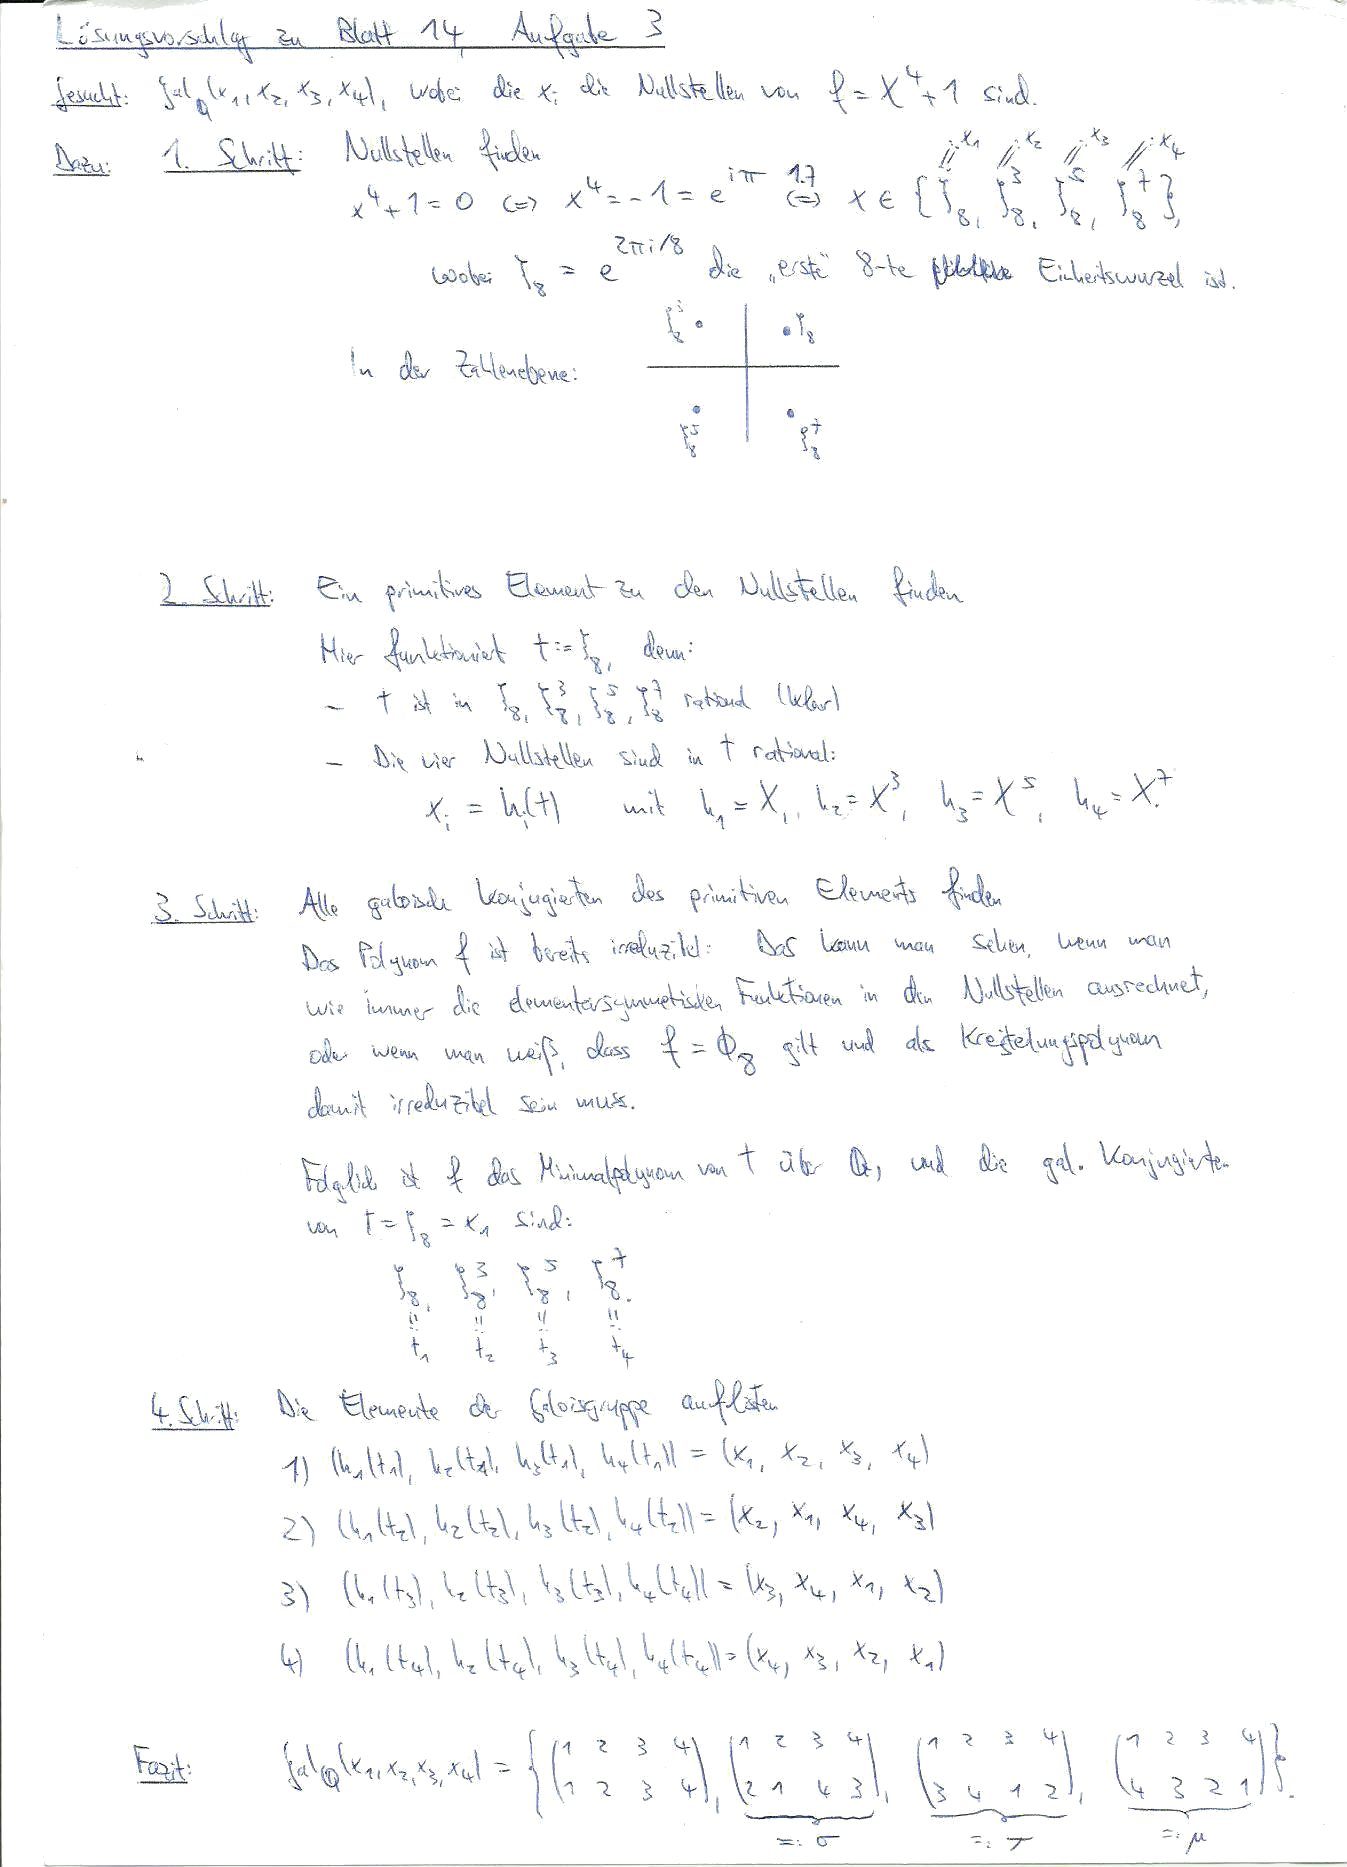 Lösungsvorschlag zu Blatt 14, Aufgabe 3
Gesucht: Gal_Q(x₁, x₂, x₃, x₄), wobei die xᵢ die Nullstellen von f = X⁴ + 1 sind.
Dazu: 1. Schritt: Nullstellen finden
x⁴ + 1 = 0 ⇔ x⁴ = -1 = e^{iπ} ⇔ (1.7) x ∈ {ζ₈, ζ₈³, ζ₈⁵, ζ₈⁷},
x₁ x₂ x₃ x₄
wobei ζ₈ = e^{2πi/8} die „erste" 8-te Einheitswurzel ist.
ζ₈³ ζ₈
In der Zahlenebene:
ζ₈⁵ ζ₈⁷
2. Schritt: Ein primitives Element zu den Nullstellen finden
Hier funktioniert t := ζ₈, denn:
– t ist in ζ₈, ζ₈³, ζ₈⁵, ζ₈⁷ rational (klar)
– Die vier Nullstellen sind in t rational:
xᵢ = hᵢ(t) mit h₁ = X, h₂ = X³, h₃ = X⁵, h₄ = X⁷.
3. Schritt: Alle galoissch Konjugierten des primitiven Elements finden
Das Polynom f ist bereits irreduzibel: Das kann man sehen, wenn man
wie immer die elementarsymmetischen Funktionen in den Nullstellen ausrechnet,
oder wenn man weiß, dass f = Φ₈ gilt und als Kreisteilungspolynom
damit irreduzibel sein muss.
Folglich ist f das Minimalpolynom von t über Q, und die gal. Konjugierten
von t = ζ₈ = x₁ sind:
ζ₈, ζ₈³, ζ₈⁵, ζ₈⁷.
=: =: =: =:
t₁ t₂ t₃ t₄
4. Schritt: Die Elemente der Galoisgruppe auflisten
1) (h₁(t₁), h₂(t₁), h₃(t₁), h₄(t₁)) = (x₁, x₂, x₃, x₄)
2) (h₁(t₂), h₂(t₂), h₃(t₂), h₄(t₂)) = (x₂, x₁, x₄, x₃)
3) (h₁(t₃), h₂(t₃), h₃(t₃), h₄(t₄)) = (x₃, x₄, x₁, x₂)
4) (h₁(t₄), h₂(t₄), h₃(t₄), h₄(t₄)) = (x₄, x₃, x₂, x₁)
Fazit: Gal_Q(x₁, x₂, x₃, x₄) = {(1 2 3 4 / 1 2 3 4), (1 2 3 4 / 2 1 4 3), (1 2 3 4 / 3 4 1 2), (1 2 3 4 / 4 3 2 1)}.
=: σ =: τ =: μ